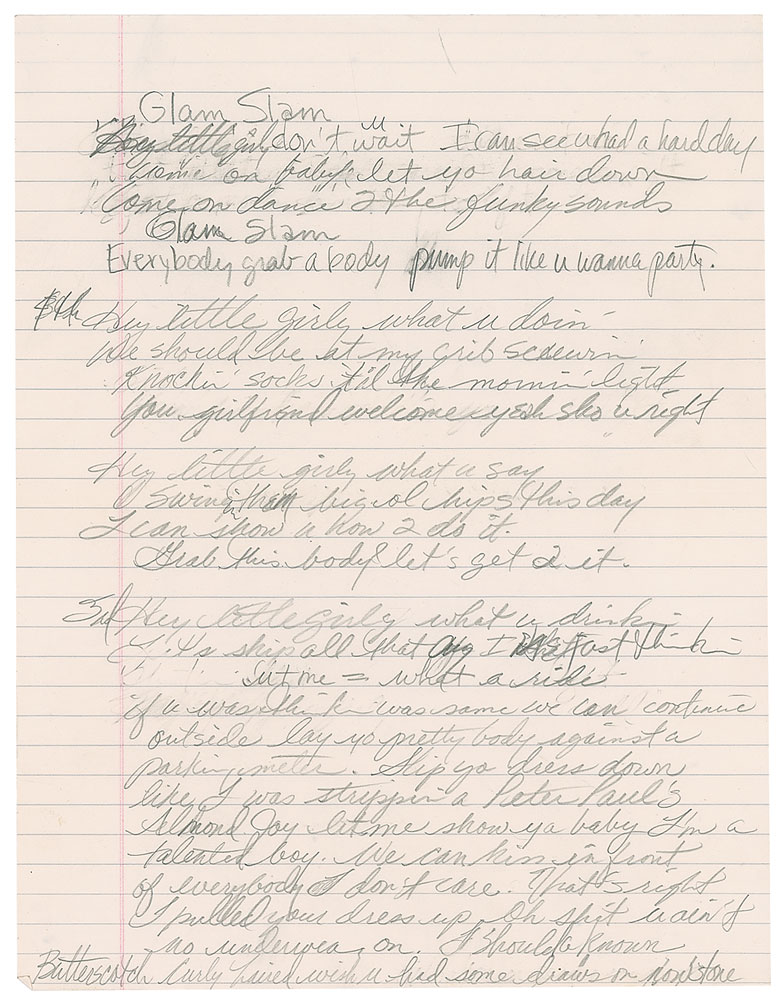 Glam Slam
Hey little girly don't u wait I can see u had a hard day
Come on baby let yo hair down
Come on dance 2 the funky sounds
Glam Slam
Everybody grab a body pump it like u wanna party.
4th Hey little girly what u doin'
We should be at my crib screwin'
Knockin' socks til the mornin' light
You girlfriend welcome yeah sho u right
Hey little girly what u say
Swingin them big ol hips this day
I can show u how 2 do it.
Grab this body & let's get 2 it.
3rd Hey little girly what u drinkin
Let's skip all that I was just thinkin
U + me = what a ride
if u was thinkin was same we can continue
outside lay yo pretty body against a
parking meter. Slip yo dress down
like I was strippin a Peter Paul's
Almond Joy let me show ya baby I'm a
talented boy. We can kiss in front
of everybody I don't care. That's right
I pulled your dress up oh shit u ain't
no underwear on. I should a known
Butterscotch curly haired wish u had some draws on now